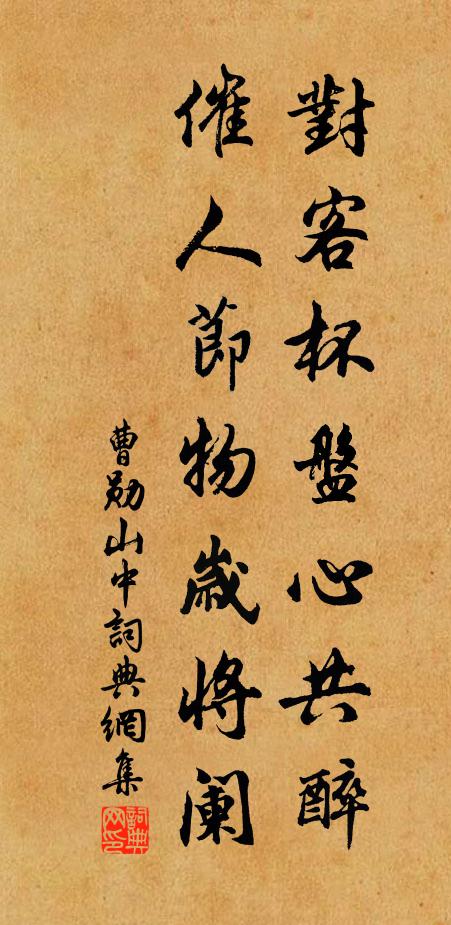 對客杯盤心共醉
催人節物歲將闌
曹勛山中詞典網集
詞典网印